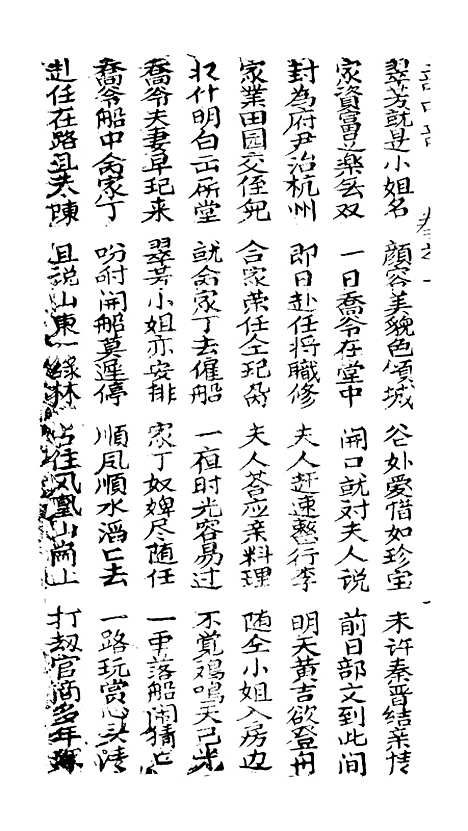 卷之一
翠芳就是小姐名 顏容美貌色傾城 爱惜如珍宝 未许秦晋结亲情
家資富足樂無双 一日喬爷在堂中 開口就对夫人说 前日部文到此间
封為府尹治杭州 即日赴任将職修 夫人赶速整行李 明天黄吉欲登舟
家業田园交侄 合家荣任仝 夫人荅应亲料理 随仝小姐入房边
收什明白出所堂 就命家丁去催船 一夜时光容易过 不觉鸡鸣天己光
喬爷夫妻早起来 翠芳小姐亦安排 家丁奴婢尽随任 一更落船闹猜亡
喬爷船中命家丁 吩咐開船莫遲停 順风順水滔亡去 一路玩赏心头清
赴任在路且夫陳 且说山東一緑林 占住凤凰山尚上 打刼官商多年